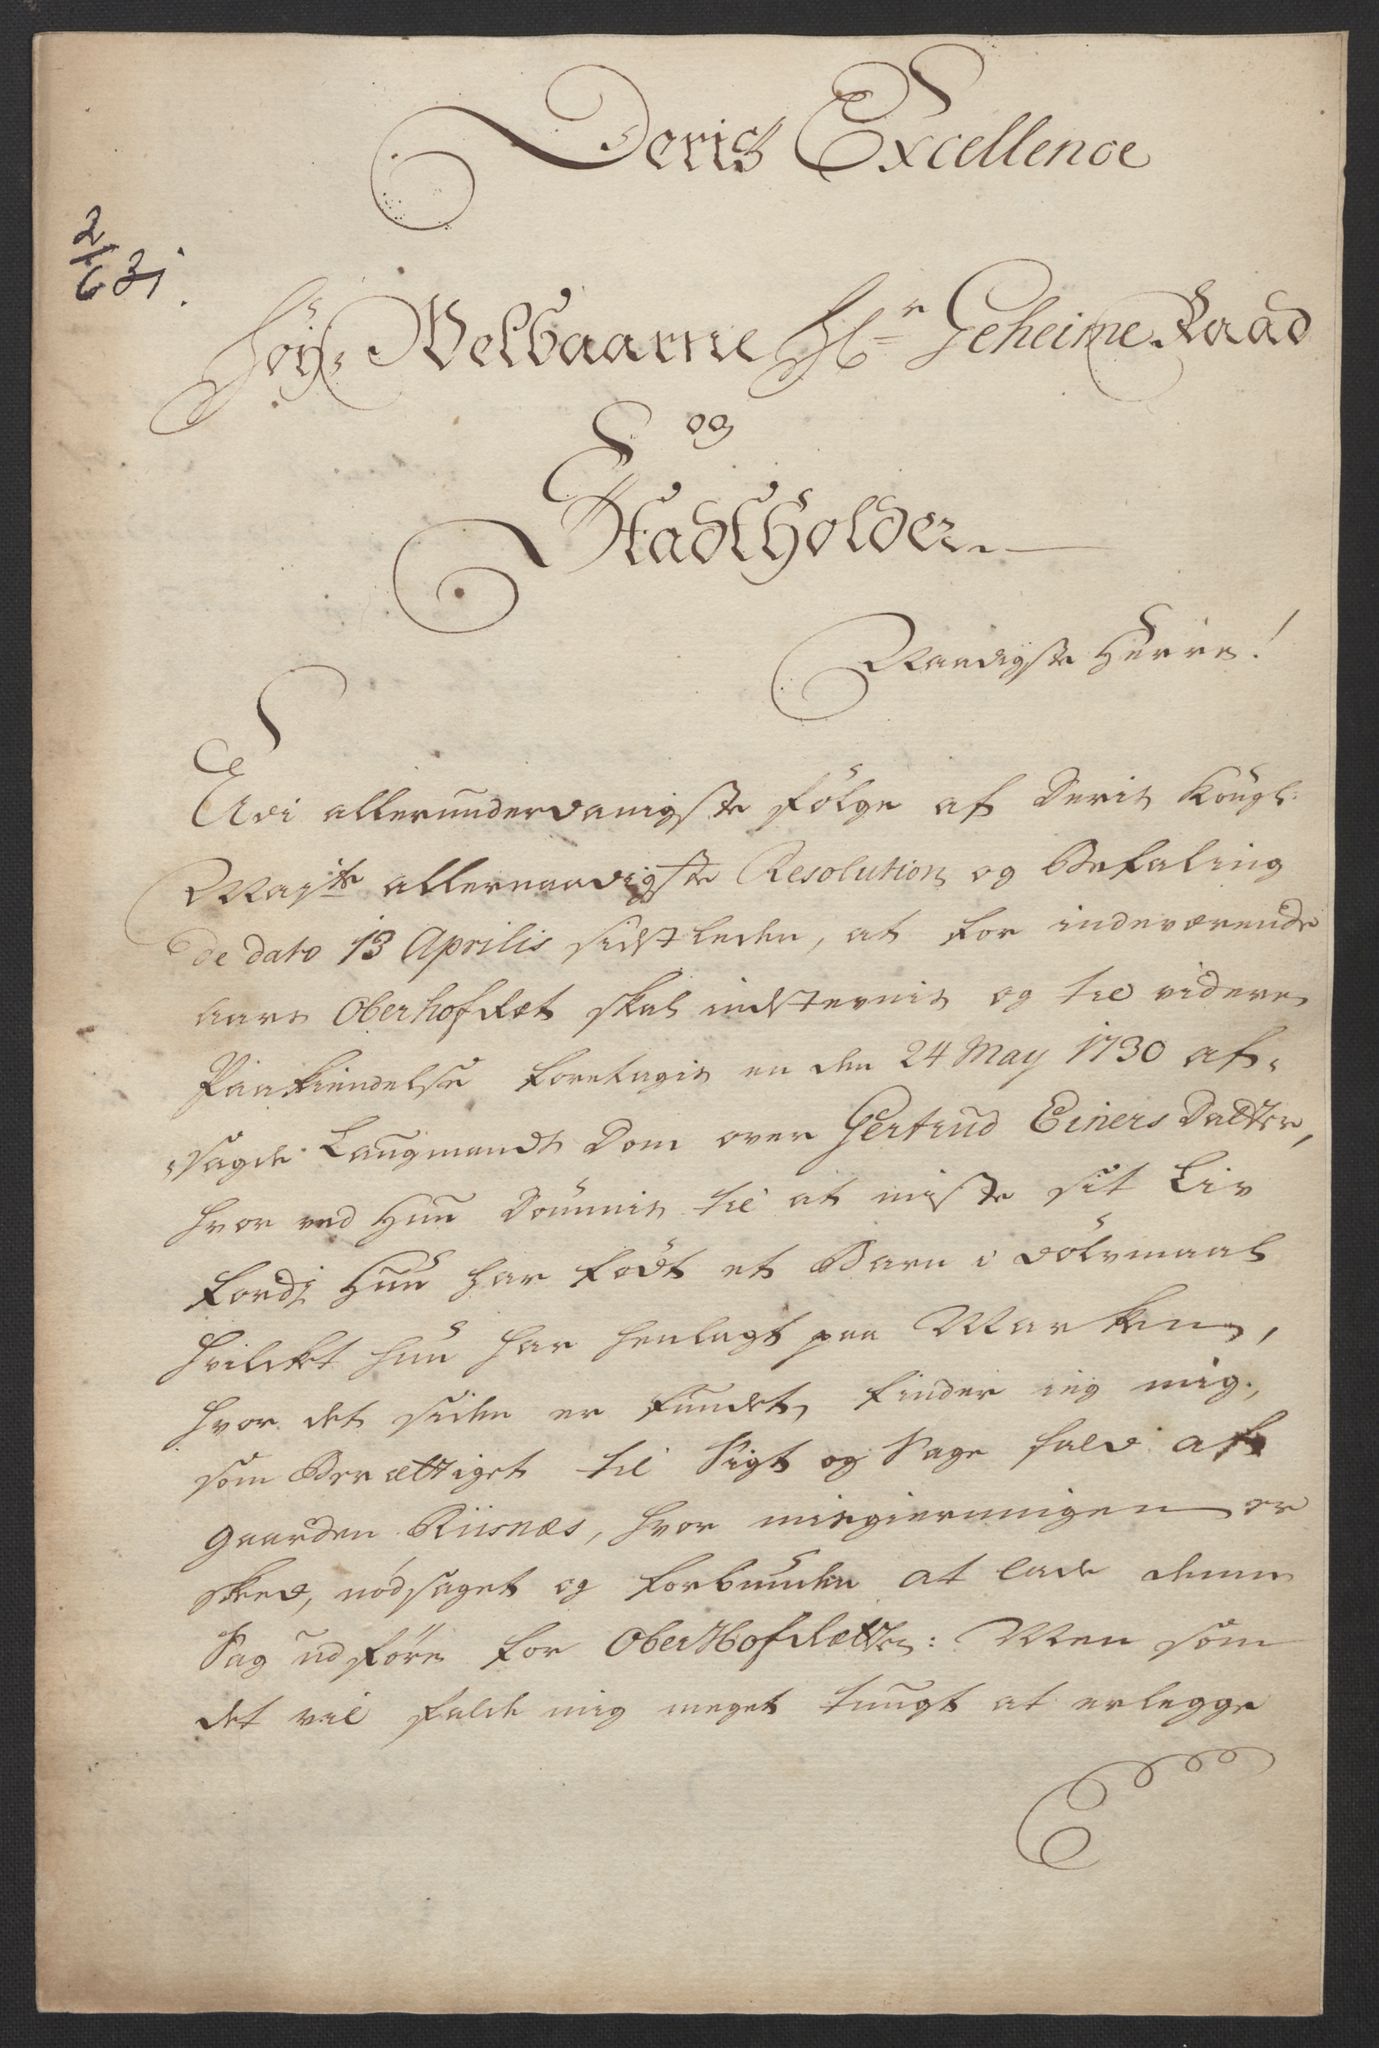 Deris Excellence
2/6 31.
Høy-Velbaarne Hr. Geheime Raad
og
Stadtholder
Naadigste Herre!
Udi allerunderdanigste følge af Deris Kongl:
Mayts allernaadigste Resolution og Befaling
de dato 13 Aprilis sidstleden, at for indeværende
aars OberhofRet skal indstevnis og til videre
Paakiendelse foretagis en den 24 May 1730 af-
sagde Laugmands Dom over Gertrud Einers Datter,
hvor ved Hun Dømmis til at miste sit Liv
fordj Hun har født et Barn i dølvmaal
hvilcket hun har henlagt paa Marken,
hvor det siden er fundet, finder ieg mig,
som Berættiget til Sigt og Sage fald af
gaarden Riisnæs, hvor misgierningen er
skeed, nødsaget og forbunden at lade denne
Sag udføre for OberHofRetten: Men som
det vil falde mig meget tungt at erlegge